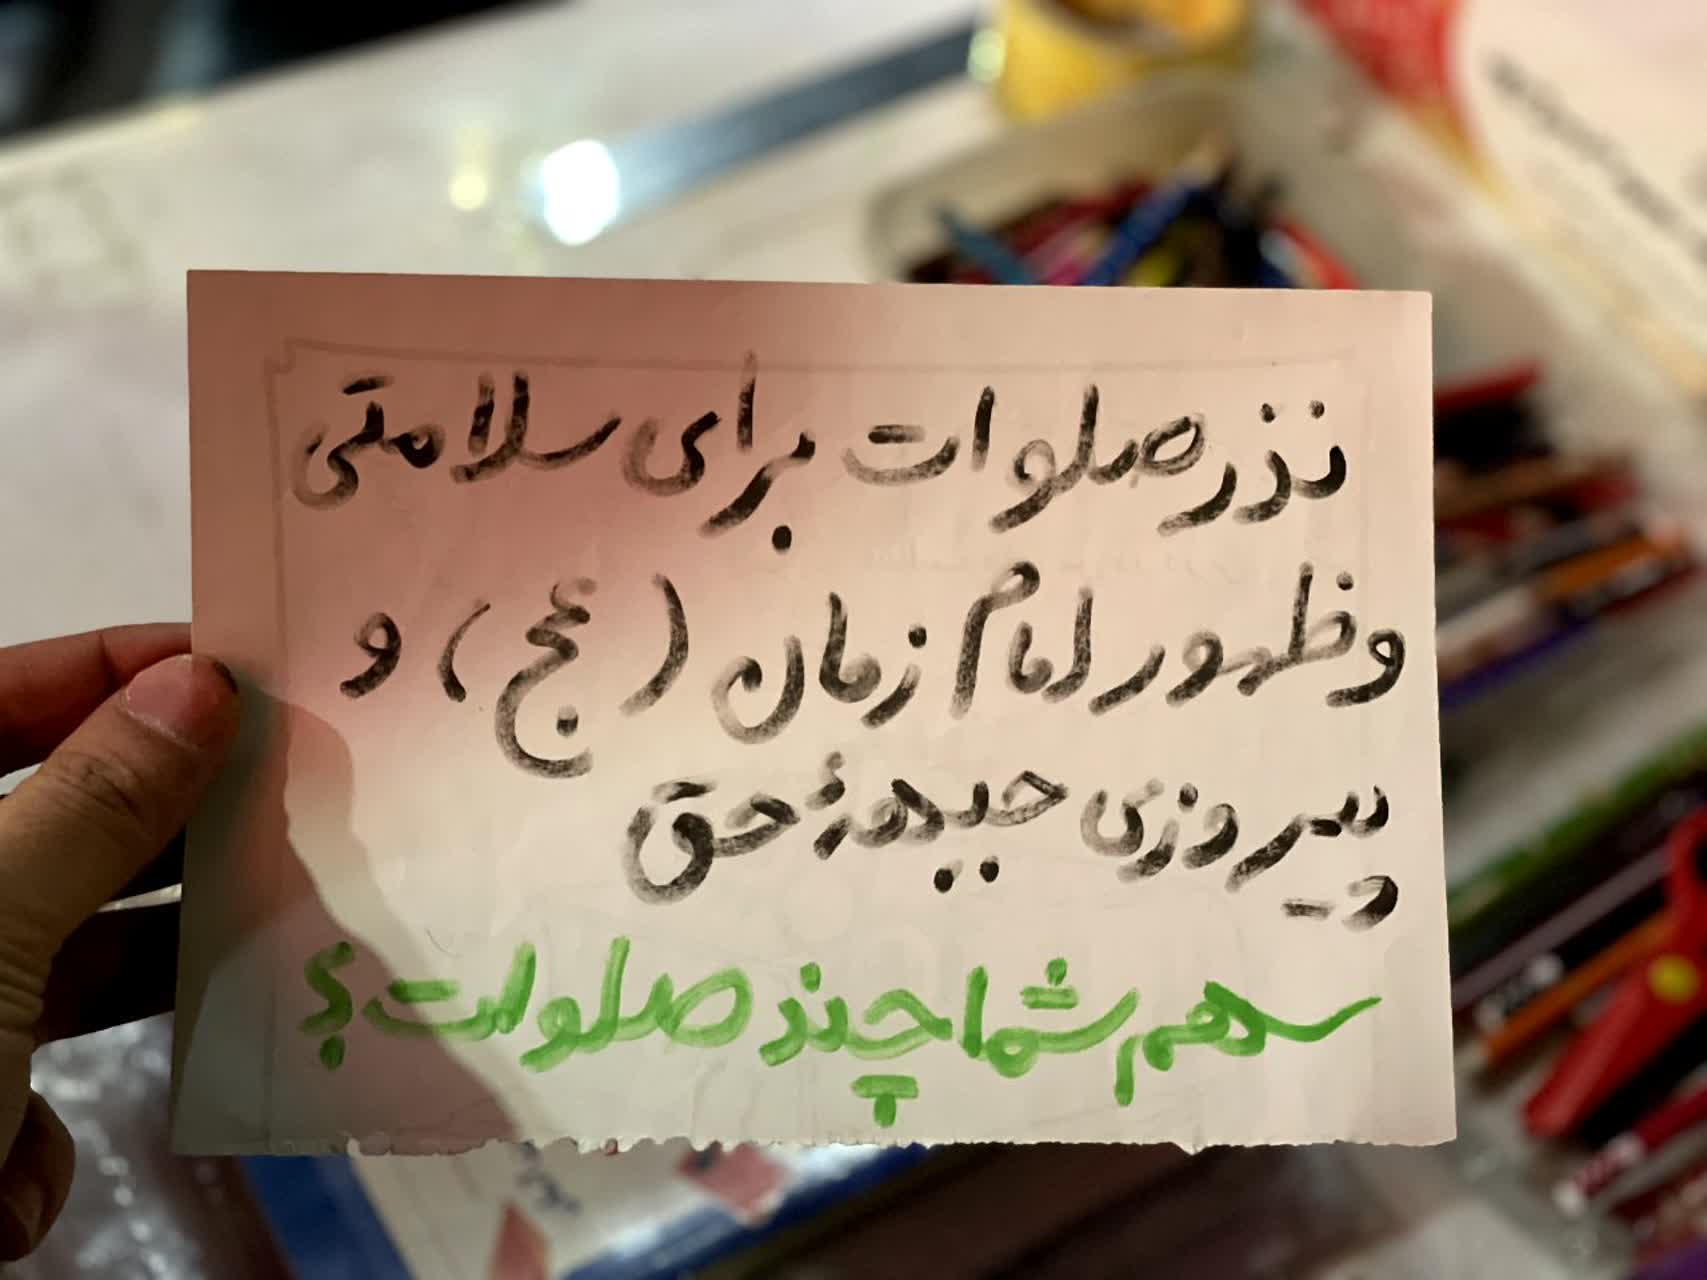 نذر صلوات برای سلامتی
و ظهور امام زمان (عج) و
پیروزی جبههٔ حق
سهم شما چند صلوات؟